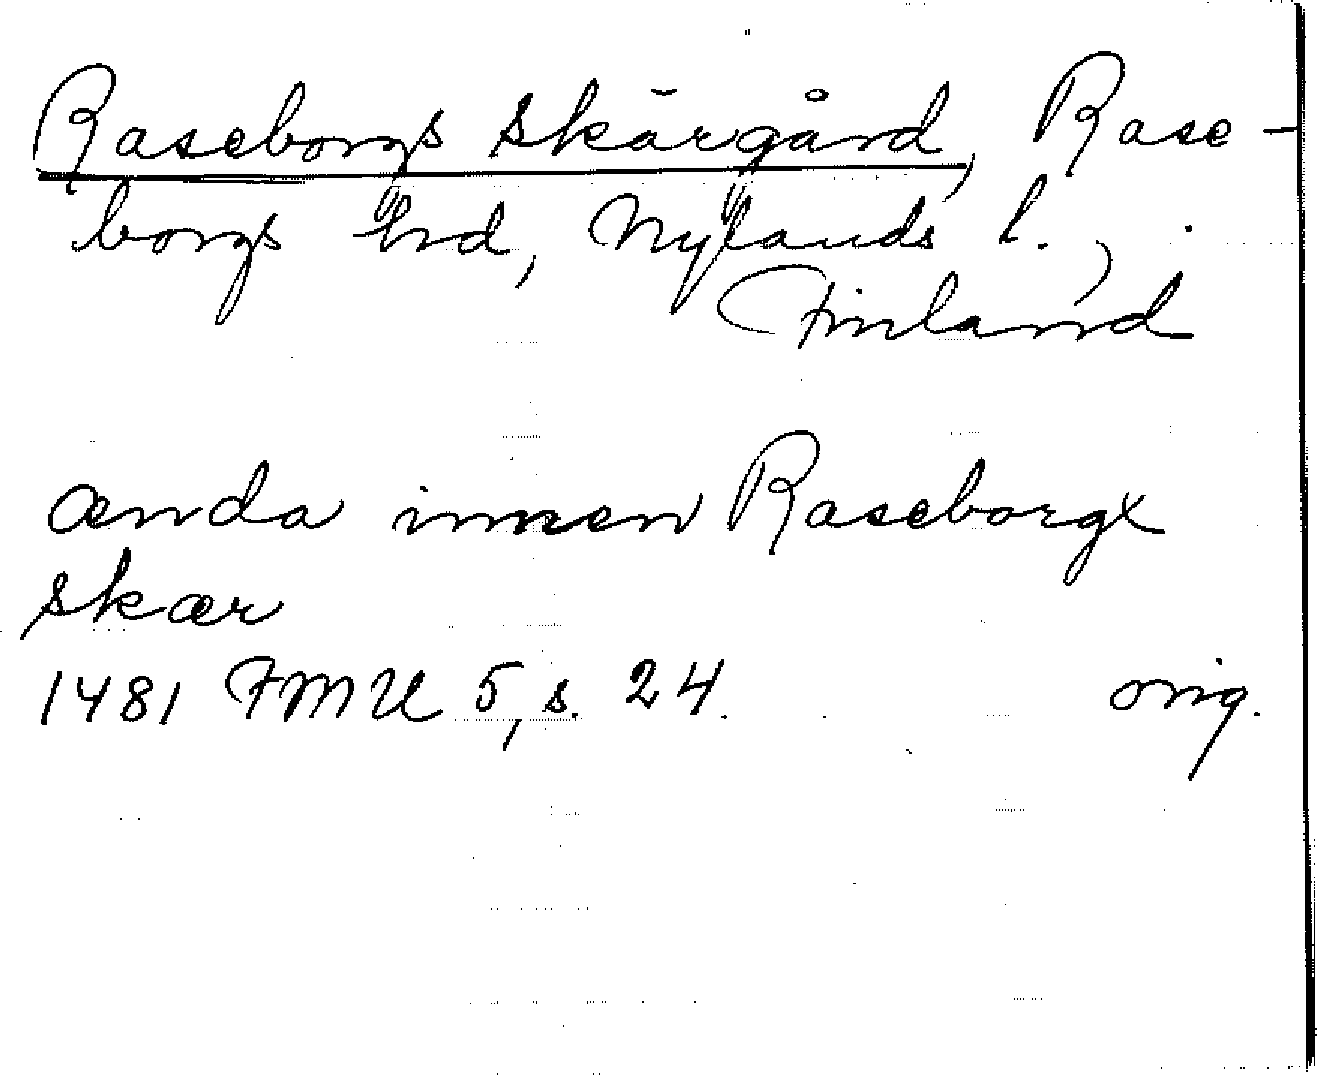 Raseborgs skärgård, Rase-
borgs hrd, Nylands l.,
Finland
ænda innen Raseborgx
skær
1481 FMU 5, s. 24. orig.